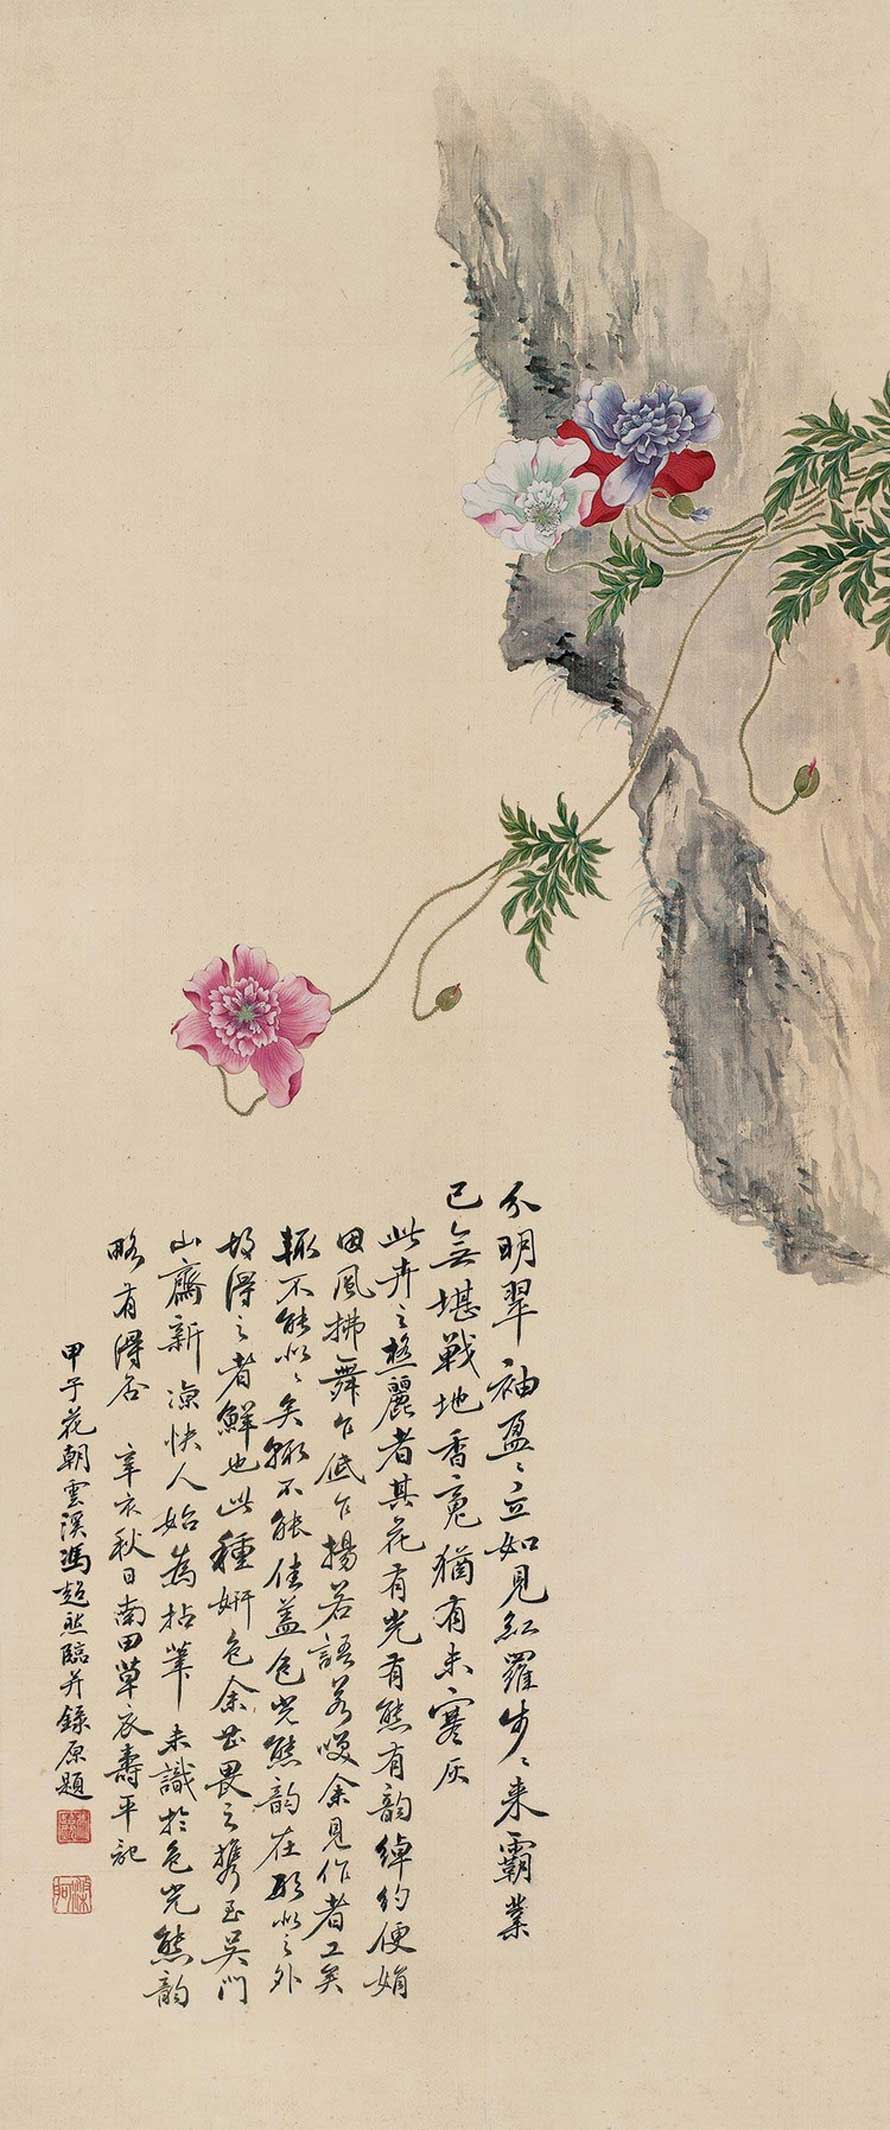 分明翠袖盈〻立如見紅羅步〻来霸業
已無堪戰地香魂猶有未寒灰
此卉之極麗者其花有光有態有韵綽約便娟
因風拂舞乍低乍揚若語若笑余見作者工矣
輙不能似〻矣輙不能佳蓋色光態韵在形似之外
故得之者鮮也此種妍色余甚畏之攜至吴門
山齋新涼快人始為拈筆未識於色光態韵
略有得否 辛亥秋日南田草衣壽平記
甲子花朝雲溪馮超然臨并錄原題